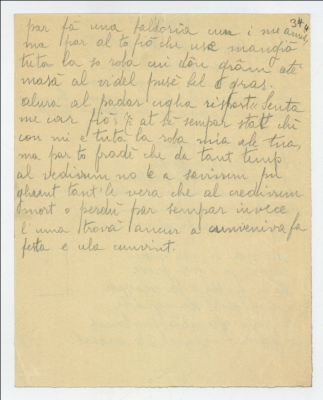 34 4
par fá una baldoria cun i me amis,
ma par al tó fió che usa mangiá
tuta la so roba cui dòn grám
masá al videl pusè bel e gras.
alura al padar ugha rispòst: Senta
me car fiò, te at sè sempar stat chì
con mi e tuta la roba mia a l'è tua,
ma par tò fradè che da tant temp
al vedivum no e a savivum pù
gheent tant l'è vera che al credivum
mort o perdú par sempar invece
l'uma trová ancur a cunveniva fa
festa e ula cunvint.